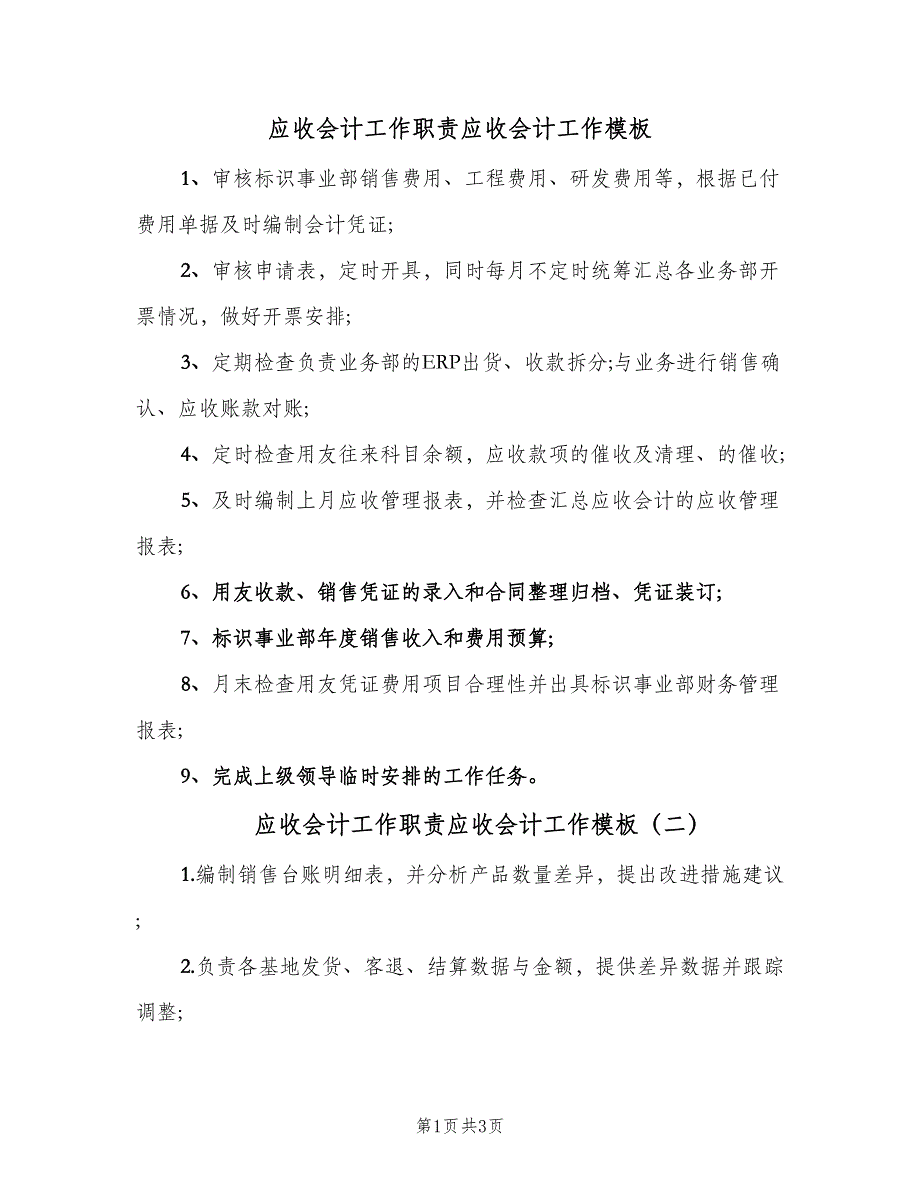 应收会计工作职责应收会计工作模板
1、审核标识事业部销售费用、工程费用、研发费用等，根据已付
费用单据及时编制会计凭证;
2、审核申请表，定时开具，同时每月不定时统筹汇总各业务部开
票情况，做好开票安排;
3、定期检查负责业务部的ERP出货、收款拆分;与业务进行销售确
认、应收账款对账;
4、定时检查用友往来科目余额，应收款项的催收及清理、的催收;
5、及时编制上月应收管理报表，并检查汇总应收会计的应收管理
报表;
6、用友收款、销售凭证的录入和合同整理归档、凭证装订;
7、标识事业部年度销售收入和费用预算;
8、月末检查用友凭证费用项目合理性并出具标识事业部财务管理
报表;
9、完成上级领导临时安排的工作任务。
应收会计工作职责应收会计工作模板（二）
1.编制销售台账明细表，并分析产品数量差异，提出改进措施建议
;
2.负责各基地发货、客退、结算数据与金额，提供差异数据并跟踪
调整;
第1页共3页